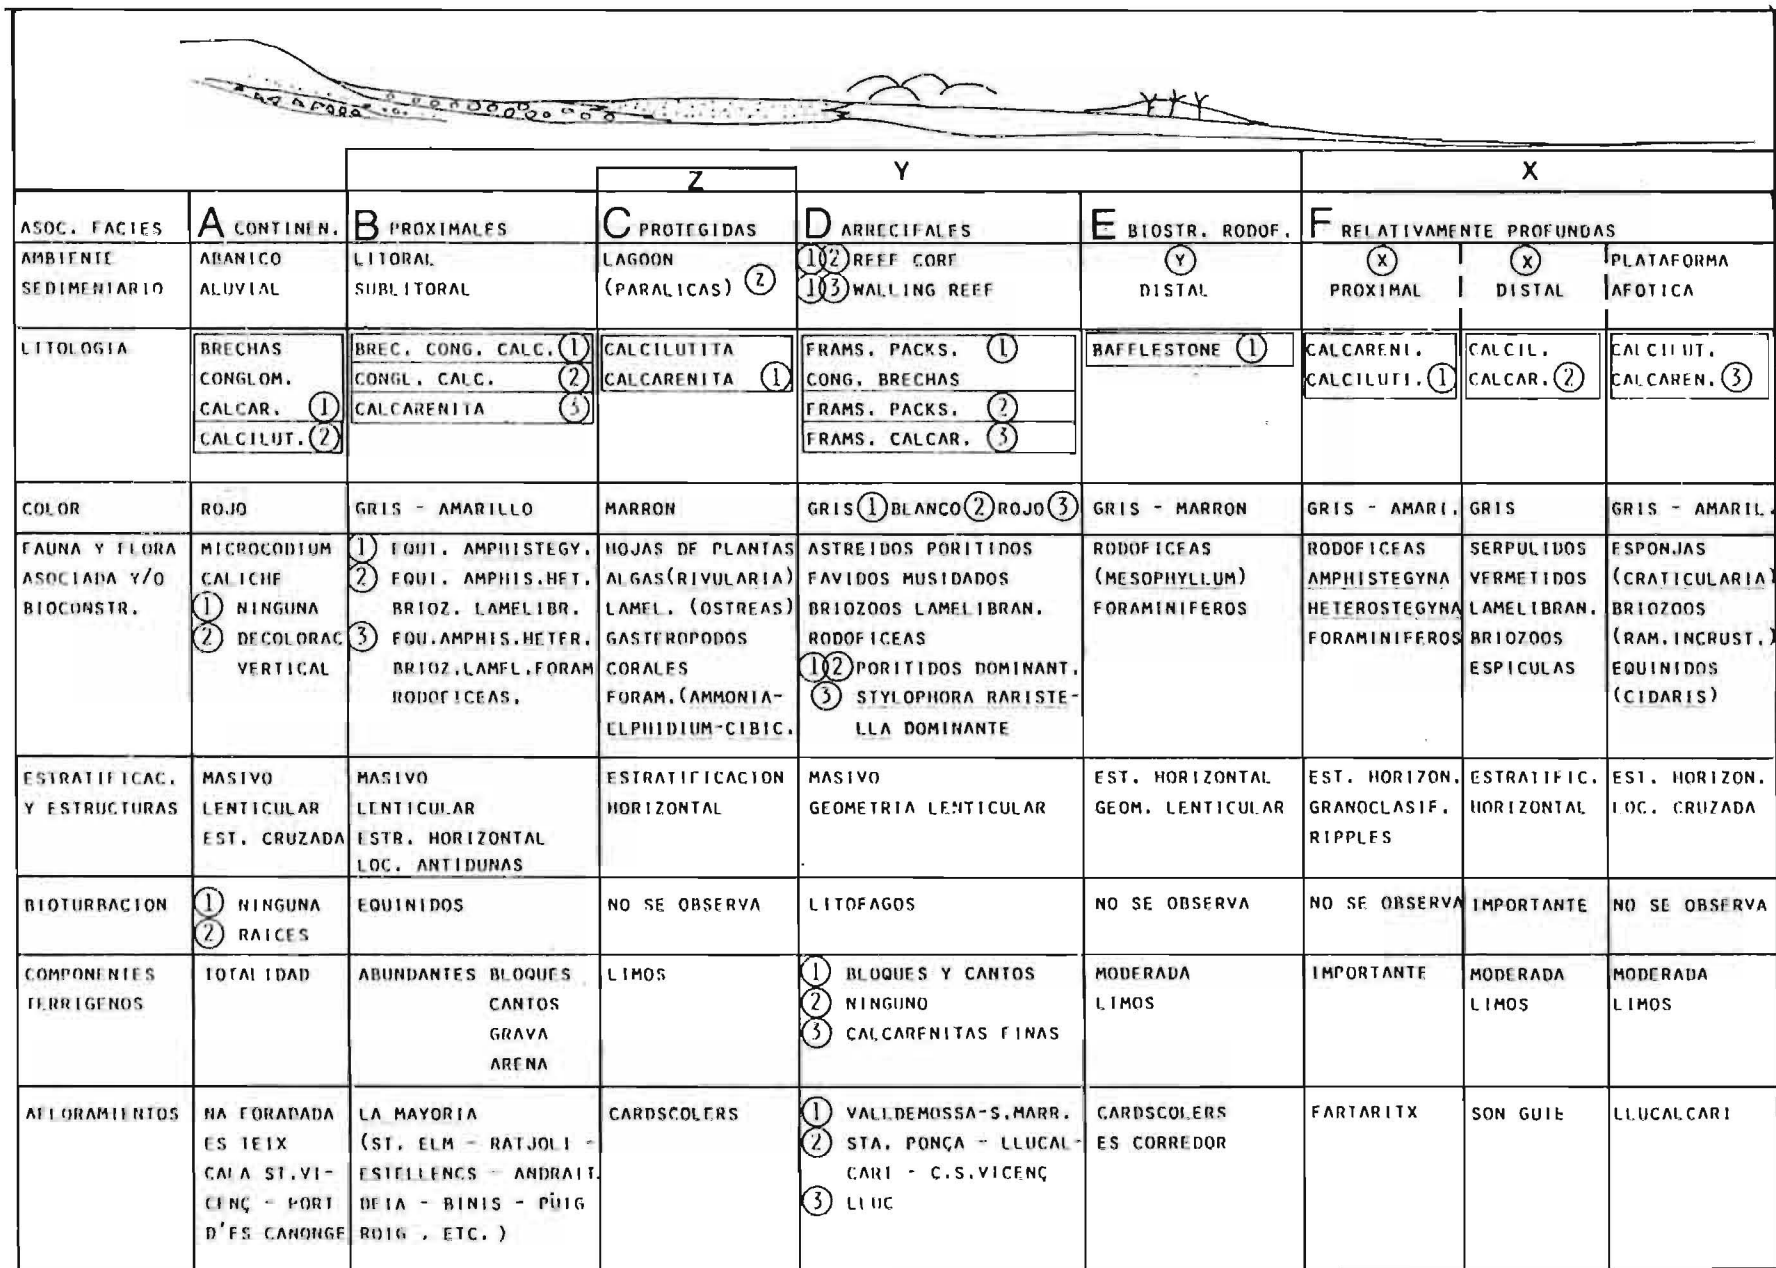 Z
Y
X
ASOC. FACIES
A CONTINEN.
B PROXIMALES
C PROTEGIDAS
D ARRECIFALES
E BIOSTR. RODOF.
F RELATIVAMENTE PROFUNDAS
AMBIENTE
SEDIMENTARIO
ABANICO
ALUVIAL
LITORAL
SUBLITORAL
LAGOON
(PARALICAS) Z
1 2 REEF CORE
1 3 WALLING REEF
Y
DISTAL
X
PROXIMAL
X
DISTAL
PLATAFORMA
AFOTICA
LITOLOGIA
BRECHAS
CONGLOM.
CALCAR. 1
CALCILUT. 2
BREC. CONG. CALC. 1
CONGL. CALC. 2
CALCARENITA 3
CALCILUTITA
CALCARENITA 1
FRAMS. PACKS. 1
CONG. BRECHAS
FRAMS. PACKS. 2
FRAMS. CALCAR. 3
BAFFLESTONE 1
CALCARENI.
CALCILUTI. 1
CALCIL.
CALCAR. 2
CALCILUT.
CALCAREN. 3
COLOR
ROJO
GRIS - AMARILLO
MARRON
GRIS 1 BLANCO 2 ROJO 3
GRIS - MARRON
GRIS - AMARI.
GRIS
GRIS - AMARIL.
FAUNA Y FLORA
ASOCIADA Y/O
BIOCONSTR.
MICROCODIUM
CALICHE
1 NINGUNA
2 DECOLORAC
VERTICAL
1 EQUI. AMPHISTEGY.
2 EQUI. AMPHIS.HET.
BRIOZ. LAMELIBR.
3 EQU.AMPHIS.HETER.
BRIOZ.LAMEL.FORAM
RODOFICEAS.
HOJAS DE PLANTAS
ALGAS(RIVULARIA)
LAMEL. (OSTREAS)
GASTEROPODOS
CORALES
FORAM.(AMMONIA-
ELPHIDIUM-CIBIC.
ASTREIDOS PORITIDOS
FAVIDOS MUSIDADOS
BRIOZOOS LAMELIBRAN.
RODOFICEAS
1 2 PORITIDOS DOMINANT.
3 STYLOPHORA RARISTE-
LLA DOMINANTE
RODOFICEAS
(MESOPHYLLUM)
FORAMINIFEROS
RODOFICEAS
AMPHISTEGYNA
HETEROSTEGYNA
FORAMINIFEROS
SERPULIDOS
VERMETIDOS
LAMELIBRAN.
BRIOZOOS
ESPICULAS
ESPONJAS
(CRATICULARIA)
BRIOZOOS
(RAM.INCRUST.)
EQUINIDOS
(CIDARIS)
ESTRATIFICAC.
Y ESTRUCTURAS
MASIVO
LENTICULAR
EST. CRUZADA
MASIVO
LENTICULAR
ESTR. HORIZONTAL
LOC. ANTIDUNAS
ESTRATIFICACION
HORIZONTAL
MASIVO
GEOMETRIA LENTICULAR
EST. HORIZONTAL
GEOM. LENTICULAR
EST. HORIZON.
GRANOCLASIF.
RIPPLES
ESTRATIFIC.
HORIZONTAL
EST. HORIZON.
LOC. CRUZADA
BIOTURBACION
1 NINGUNA
2 RAICES
EQUINIDOS
NO SE OBSERVA
LITOFAGOS
NO SE OBSERVA
NO SE OBSERVA
IMPORTANTE
NO SE OBSERVA
COMPONENTES
TERRIGENOS
TOTALIDAD
ABUNDANTES BLOQUES
CANTOS
GRAVA
ARENA
LIMOS
1 BLOQUES Y CANTOS
2 NINGUNO
3 CALCARENITAS FINAS
MODERADA
LIMOS
IMPORTANTE
MODERADA
LIMOS
MODERADA
LIMOS
AFLORAMIENTOS
NA FORADADA
ES TEIX
CALA ST.VI-
CENÇ - PORT
D'ES CANONGE
LA MAYORIA
(ST. ELM - RATJOLI -
ESTELLENCS - ANDRAIT.
DEIA - BINIS - PUIG
ROIG , ETC. )
CARDSCOLERS
1 VALLDEMOSSA-S.MARR.
2 STA. PONÇA - LLUCAL-
CARI - C.S.VICENÇ
3 LLUC
CARDSCOLERS
ES CORREDOR
FARTARITX
SON GUIE
LLUCALCARI